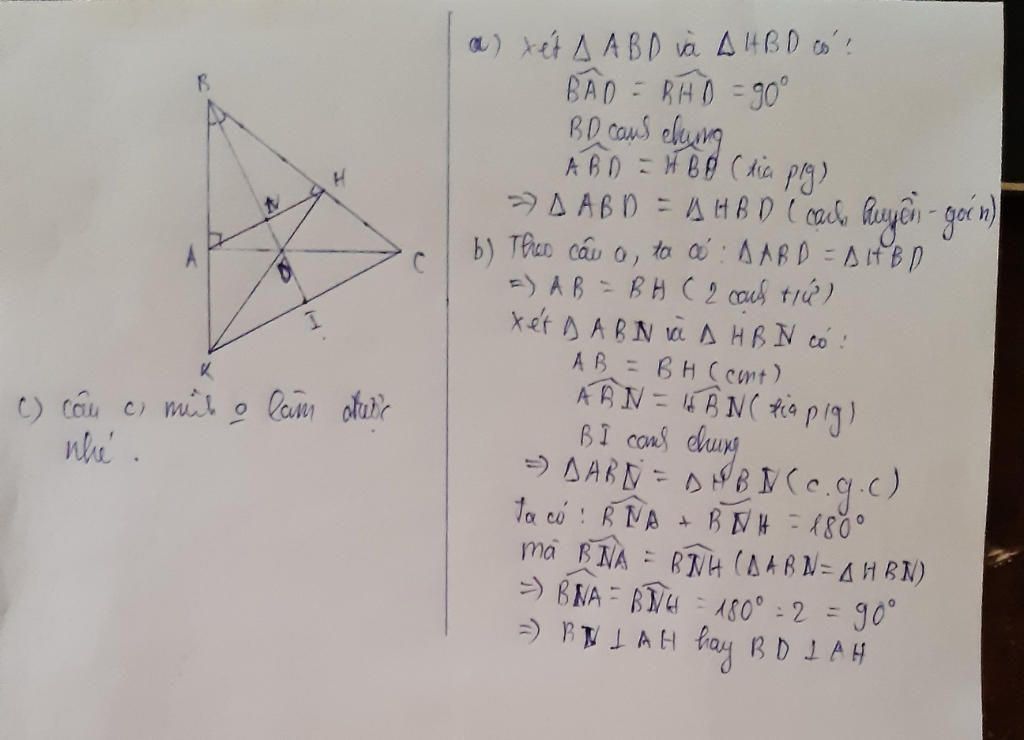 B
H
N
A
D
C
I
K
c) câu c, mình o làm được
nhé.
a) Xét Δ ABD và Δ HBD có:
BAD = BHD = 90°
BD cạnh chung
ABD = HBD (tia p/g)
=> Δ ABD = Δ HBD (cạnh huyền - góc n)
b) Theo câu a, ta có: Δ ABD = Δ HBD
=> AB = BH (2 cạnh t/ứ)
Xét Δ ABN và Δ HBN có:
AB = BH (cmt)
ABN = HBN (tia p/g)
BI cạnh chung
=> Δ ABN = Δ HBN (c.g.c)
Ta có: BNA + BNH = 180°
mà BNA = BNH (Δ ABN = Δ HBN)
=> BNA = BNH = 180° : 2 = 90°
=> BN ⊥ AH hay BD ⊥ AH